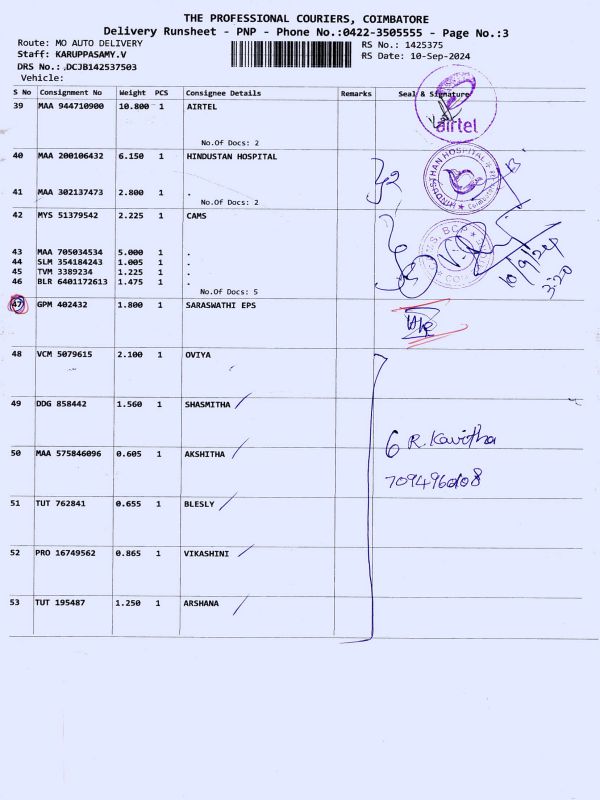 THE PROFESSIONAL COURIERS, COIMBATORE
Delivery Runsheet - PNP - Phone No.:0422-3505555 - Page No.:3
Route: MO AUTO DELIVERY RS No.: 1425375
Staff: KARUPPASAMY.V RS Date: 10-Sep-2024
DRS No.: DCJB142537503
Vehicle:
S No Consignment No Weight PCS Consignee Details Remarks Seal & Signature
39 MAA 944710900 10.800 1 AIRTEL
airtel
No.Of Docs: 2
40 MAA 200106432 6.150 1 HINDUSTAN HOSPITAL
HINDUSTHAN HOSPITAL
41 MAA 302137473 2.800 1 .
No.Of Docs: 2
42 MYS 51379542 2.225 1 CAMS
43 MAA 705034534 5.000 1 .
44 SLM 354184243 1.005 1 .
45 TVM 3389234 1.225 1 .
46 BLR 6401172613 1.475 1 .
10/9/24
3:20
No.Of Docs: 5
47 GPM 402432 1.800 1 SARASWATHI EPS
48 VCM 5079615 2.100 1 OVIYA
49 DDG 858442 1.560 1 SHASMITHA
6 R. Kavitha
50 MAA 575846096 0.605 1 AKSHITHA
51 TUT 762841 0.655 1 BLESLY
52 PRO 16749562 0.865 1 VIKASHINI
53 TUT 195487 1.250 1 ARSHANA